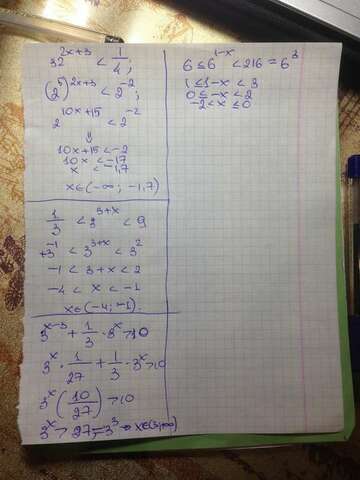 32^(2x+3) < 1/4;
(2^5)^(2x+3) < 2^(-2);
2^(10x+15) < 2^(-2)
⇓
10x+15 < -2
10x < -17
x < -1,7
x∈(-∞; -1,7)
1/3 < 3^(3+x) < 9
3^(-1) < 3^(3+x) < 3^2
-1 < 3+x < 2
-4 < x < -1
x∈(-4; -1).
3^(x-3) + 1/3 · 3^x > 10
3^x · 1/27 + 1/3 · 3^x > 10
3^x (10/27) > 10
3^x > 27 = 3^3 → x∈(3; +∞)
6 ≤ 6^(1-x) < 216 = 6^3
1 ≤ 1-x < 3
0 ≤ -x < 2
-2 < x ≤ 0